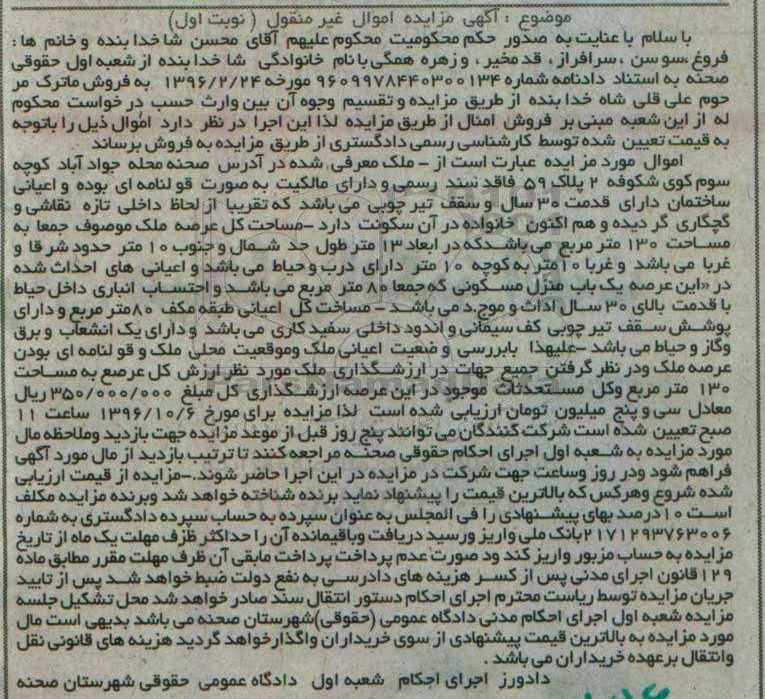 موضوع : آگهی مزایده اموال غیر منقول (نوبت اول)
با سلام با عنایت به صدور حکم محکومیت محکوم علیهم آقای محسن شاخدا بنده و خانم ها :
فروغ ،سوسن ،سرافراز، قدمخیر، و زهره همگی با نام خانوادگی شا خدا بنده از شعبه اول حقوقی
صحنه به استناد دادنامه شماره ۹۶۰۹۹۷۸۴۴۰۳۰۰۱۳۴ مورخه ۱۳۹۶/۲/۲۴ به فروش ماترک مر
حوم علی قلی شاه خدا بنده از طریق مزایده و تقسیم وجوه آن بین وارث حسب در خواست محکوم
له از این شعبه مبنی بر فروش امثال از طریق مزایده لذا این اجرا در نظر دارد اموال ذیل را باتوجه
به قیمت تعیین شده توسط کارشناسی رسمی دادگستری از طریق مزایده به فروش برساند
اموال مورد مز ایده عبارت است از – ملک معرفی شده در آدرس صحنه محله جواد آباد کوچه
سوم کوی شکوفه ۲ پلاک ۵۹ فاقد سند رسمی و دارای مالکیت به صورت قو لنامه ای بوده و اعیانی
ساختمان دارای قدمت ۳۰ سال و سقف تیر چوبی می باشد که تقریبا از لحاظ داخلی تازه نقاشی و
گچکاری گر دیده و هم اکنون خانواده در آن سکونت دارد –مساحت کل عرصه ملک موصوف جمعا به
مساحت ۱۳۰ متر مربع می باشدکه در ابعاد ۱۳ متر طول حد شمال و جنوب ۱۰ متر حدود شر قا و
غربا می باشد و غربا ۱۰متر به کوچه ۱۰ متر دارای درب و حیاط می باشد و اعیانی های احداث شده
در «این عرصه یک باب منزل مسکونی که جمعا ۸۰ متر مربع می باشد و احتساب انباری داخل حیاط
با قدمت بالای ۳۰ سال اداث و موج.د می باشد – مساخت کل اعیانی طبقه مکف ۸۰متر مربع و دارای
پوشش سقف تیر چوبی کف سیمانی و اندود داخلی سفید کاری می باشد و دارای یک انشعاب و برق
وگاز و حیاط می باشد –علیهذا بابررسی و ضعیت اعیانی ملک وموقعیت محلی ملک و قو لنامه ای بودن
عرصه ملک ودر نظر گرفتن جمیع جهات در ارزشگذاری ملک مورد نظر ارزش کل عرصع به مساحت
۱۳۰ متر مربع وکل مستحدثات موجود در این عرصه ارزشگذاری کل مبلغ ۳۵۰/۰۰۰/۰۰۰ ریال
معادل سی و پنج میلیون تومان ارزیابی شده است لذا مزایده برای مورخ ۱۳۹۶/۱۰/۶ ساعت ۱۱
صبح تعیین شده است شرکت کنندگان می توانند پنج روز قبل از موعد مزایده جهت بازدید وملاحظه مال
مورد مزایده به شعبه اول اجرای احکام حقوقی صحنه مراجعه کنند تا ترتیب بازدید از مال مورد آگهی
فراهم شود ودر روز وساعت جهت شرکت در مزایده در این اجرا حاضر شوند.–مزایده از قیمت ارزیابی
شده شروع وهرکس که بالاترین قیمت را پیشنهاد نماید برنده شناخته خواهد شد وبرنده مزایده مکلف
است ۱۰درصد بهای پیشنهادی را فی المجلس به عنوان سپرده به حساب سپرده دادگستری به شماره
۲۱۷۱۲۹۳۷۶۳۰۰۶بانک ملی واریز ورسید دریافت وباقیمانده آن را حداکثر ظزف مهلت یک ماه از تاریخ
مزایده به حساب مزبور واریز کند ود صورت عدم پرداخت پرداخت مابقی آن ظرف مهلت مقرر مطابق ماده
۱۲۹قانون اجرای مدنی پس از کسر هزینه های دادرسی به نفع دولت ضبط خواهد شد پس از تایید
جریان مزایده توسط ریاست محترم اجرای احکام دستور انتقال سند صادر خواهد شد محل تشکیل جلسه
مزایده شعبه اول اجرای احکام مدنی دادگاه عمومی (حقوقی)شهرستان صحنه می باشد بدیهی است مال
مورد مزایده به بالاترین قیمت پیشنهادی از سوی خریداران واگذارخواهد گردید هزینه های قانونی نقل
وانتقال بر عهده خریداران می باشد .
دادورز اجرای اجکام شعبه اول دادگاه عمومی حقوقی شهرستان صحنه